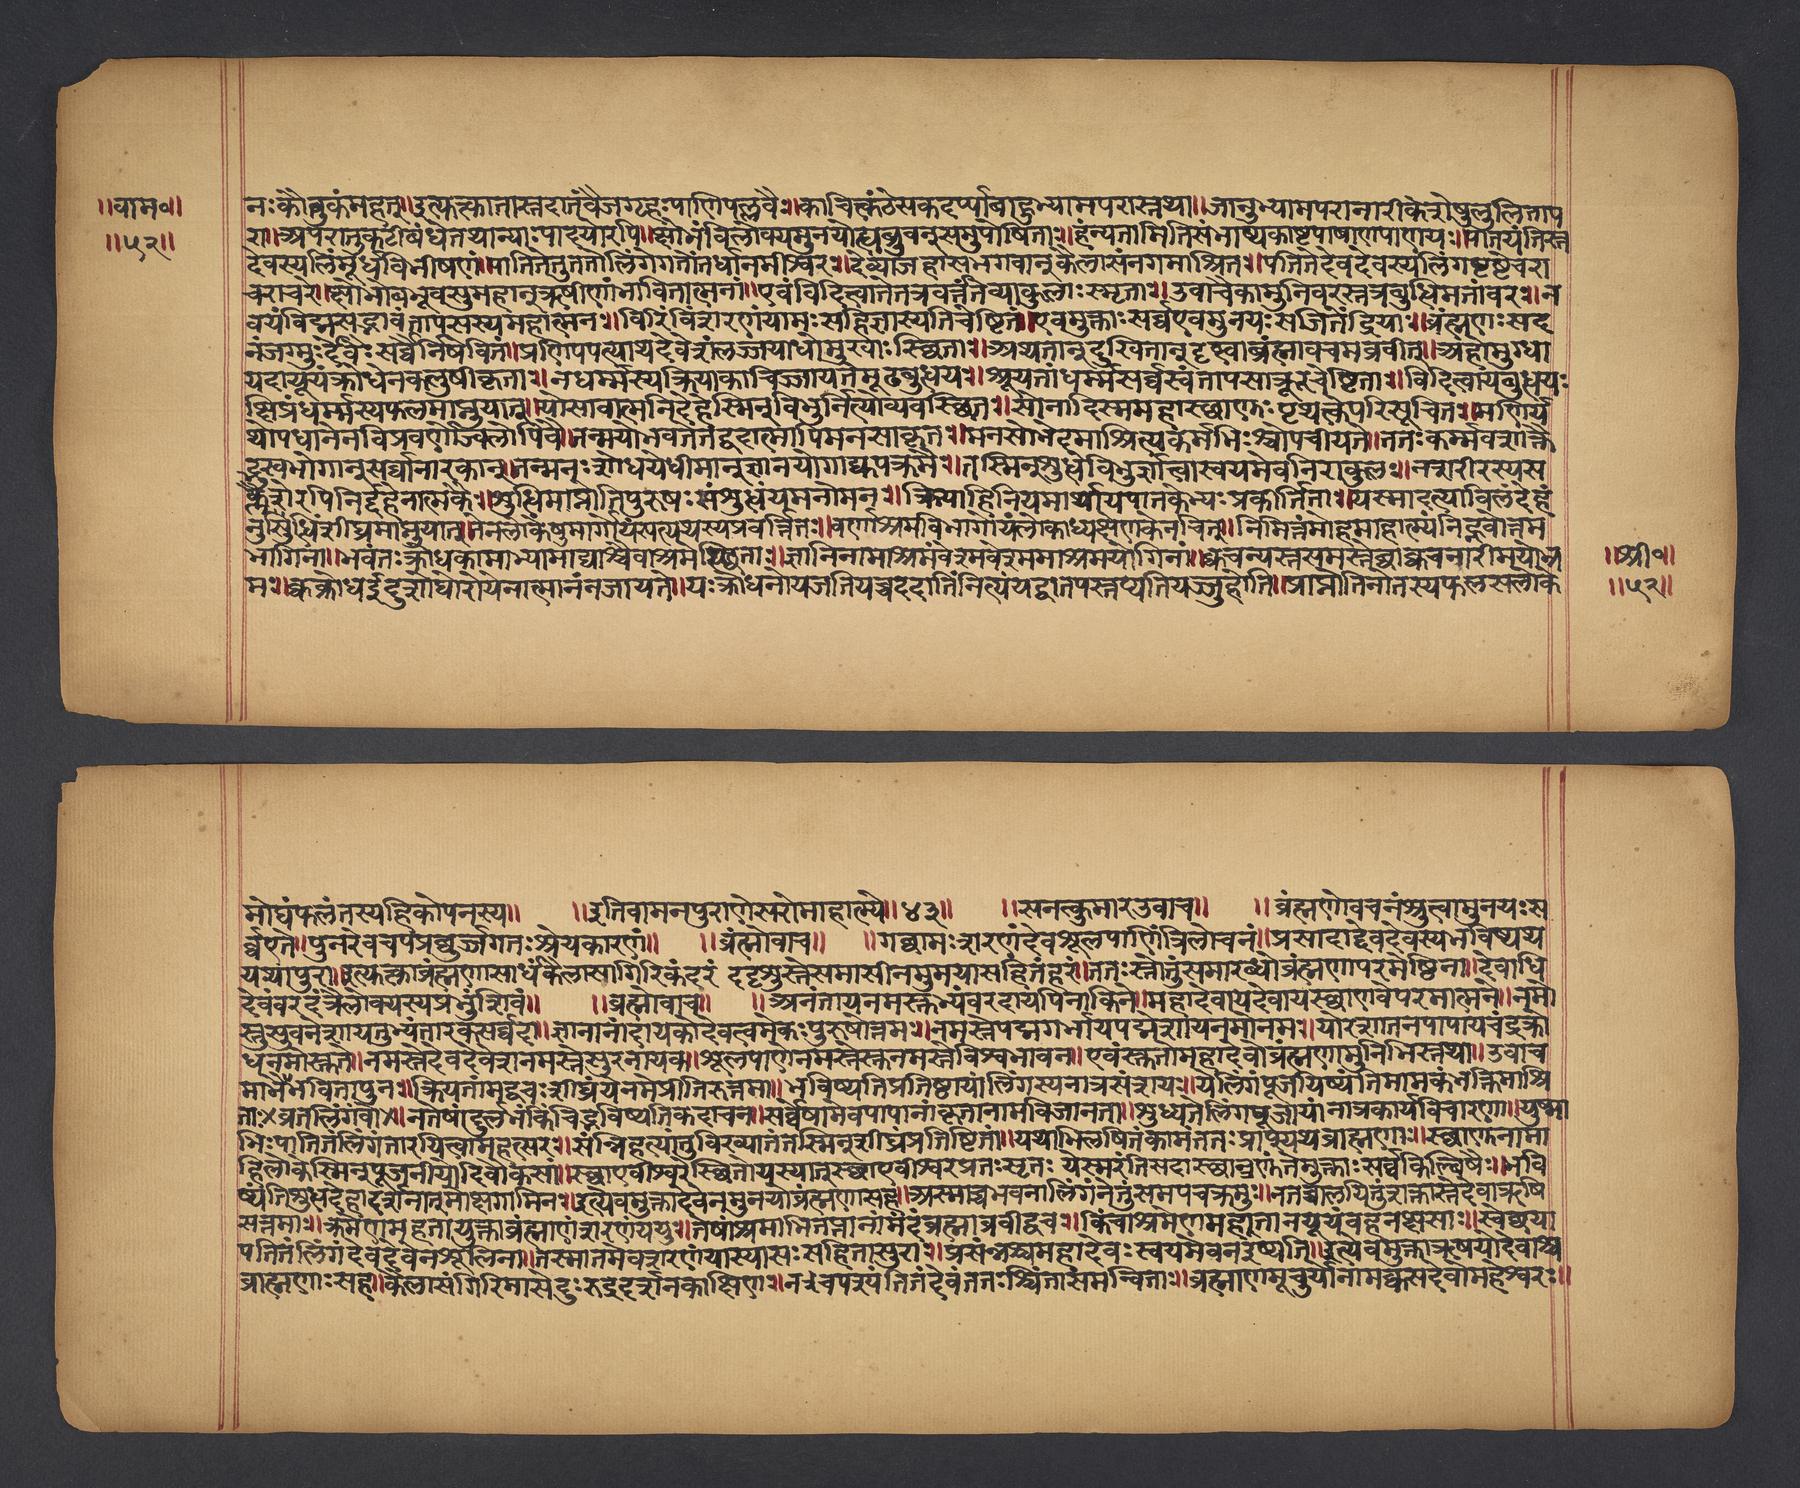 ॥वाम०॥
॥५२॥
नःकौतुकंमहत्॥इत्युक्त्वातास्तदातंवैजगृहुःपाणिपल्लवैः॥काचित्कंठेसकंदर्प्पाबाहुभ्यामपरास्तथा॥जानुभ्यामपरानारीकेशेषुलुलितापरा॥
रा॥अपरातुकटीबंधेतथान्याःपादयोरपि॥क्षोभंविलोक्यमुनयोह्यब्रुवन्सुसमुपोषिताः॥हन्यतामितिसंभाष्यकाष्टपाषाणपाणयः॥पातयंतिस्म
देवस्यलिंमूर्ध्वंविभीषणं॥पातितेतुततोलिंगेगतोंतर्धानमीश्वरः॥देव्याजहासभगवान्कैलासंनगमाश्रितः॥पतितेदेवदेवस्यलिंगेष्टष्टेचरा
चराचरे॥क्षोभोबभूवसुमहान्ऋषीणांभावितात्मनां॥एवंविदित्वातेतत्रवर्त्तंतिव्याकुलाःस्मृताः॥उवाचैकोमुनिवरस्तत्रबुधिमतांवरः॥न
वयंविद्मसद्भावंतापसस्यमहात्मनः॥विरिंचिंशरणंयामःसहितास्यतिचेष्टितं॥एवमुक्ताःसर्व्वएवमुनयःसंजितेंद्रियाः॥ब्रंह्मणःसद
नंजग्मुःदेवैःसर्व्वैर्निषेवितं॥प्रणिपपत्याथदेवेशंलज्जयाधोमुखाःस्छिताः॥अथतान्दुखितान्दृष्ट्वाब्रंह्मावचमब्रवीत्॥अहोमुग्धा
यदायूयंक्रोधेनकलुषीकृताः॥नधर्म्मस्यक्रियाकाचिज्जायतेमूढबुधयः॥श्रूयतांधर्म्मसर्व्वस्वंतापसाक्रूरचेष्टिताः॥विदित्वायंबुधयः
क्षिप्रंधर्म्मस्यफलमाप्नुयात्॥योसावात्मनिदेहेस्मिन्विभुर्नित्योव्यवस्छितः॥सोनादिस्ममहास्छाणुःपृथक्त्वेपरिसूचितः॥मणिर्य
थोपधानेनविप्रवर्णोज्वलोपिवै॥तन्मयोभवतेतंद्वदात्मापिमनसाकृतः॥मनसोभेदमाश्रित्यकर्मभिःश्चोपचीयते॥ततःकर्म्मवशात्क्ते
दुःखभोगान्सर्घ्यानारकान्॥तन्मनःशोधयेधीमान्ज्ञानयोगाद्युपक्रमैः॥तस्मिन्शुधेविभुर्ज्ञात्वास्वयमेवनिराकुलः॥नशरीरस्यस
क्लेशैरपिनिर्द्दहनात्मकैः॥शुधिमाप्नोतिपुरुषःसंशुधंयमनोमनः॥क्रियाहिनियमार्थायपातकेभ्यःप्रकीर्तिताः॥यस्मादत्याविलंदेहं
नुर्सिधिंशीघ्रमाप्नुयात्॥तेनलोकेषुमार्गोयंसत्पथस्यप्रवर्त्तितः॥वर्णाश्रमविभागोयंलोकाध्यक्षेणकेनचित्॥निर्मित्तंमोहमाहात्म्यंनिद्भवोत्तम
भागिनां॥भवंतःक्रोधकामाभ्यामाद्याश्चैवाश्रमस्छिताः॥ज्ञानिनामाश्रमंवेश्मवेश्ममाश्रमयोगिनां॥क्वचन्यस्तसमस्तेच्छाक्वचनारीमयोभ्र
मः॥क्वक्रोधईदृशोघोरोयेनात्मानंनजायते॥यःक्रोधनोयजतियच्चददातिनित्यंयद्वातपस्तप्यतियज्जुहोति॥प्राप्नोतिनोतस्यफलंसलोके
॥श्री०॥
॥५२॥
मोघंफलंतस्यहिकोपनस्य॥ ॥इतिवामनपुराणेसरोमाहात्म्ये॥४३॥ ॥सनत्कुमारउवाच॥ ॥ब्रंह्मणोवचनंश्रुत्वामुनयःस
र्व्वएते॥पुनरेवचपप्रच्छुर्जगतःश्रेयकारणं॥ ॥ब्रंह्मोवाच॥ ॥गच्छामःशरणंदेवंशूलपाणिंत्रिलोचनं॥प्रसादाद्देवदेवस्यभविष्यथ
यथापुरा॥इत्युक्त्वाब्रंह्मणासार्धंकैलासंगिरिकंदरं ददृशुस्तेसमासीनमुमयासहितंहरं॥ततःस्तोतुंसमारब्धोब्रंह्मणापरमेष्ठिना॥देवाधि
देवंवरदंत्रैलोक्यस्यप्रभुंशिवं॥ ॥ब्रह्मोवाच॥ ॥अनंतायनमस्तुभ्यंवरदायपिनाकिने॥महादेवायदेवायस्छाणवेपरमात्मने॥नमो
स्तुभुवनेशायतुभ्यंतारकसर्व्वदा॥ज्ञानानांदायकोदेवत्वमेकःपुरुषोत्तमः॥नमस्तेपद्मगर्भायपद्मेशायनमोनमः॥घोरशांतनपापायचंद्रक्रो
धनमोस्तुते॥नमस्तेदेवदेवेशनमस्तेसुरनायक॥शूलपाणेनमस्तेस्तुनमस्तेविश्वभावन॥एवंस्तुतोमहादेवोब्रंह्मणामुनिभिस्तथा॥उवाच
माभैर्भवितापुनः॥क्रियतांमद्वचःशीघ्रंयेनमेप्रीतिरुत्तमा॥भविष्यतिप्रतिष्ठायांलिंगस्यनात्रसंशयः॥येलिंगंपूजयिष्यंतिमामकंभक्तिमाश्रि
ताः×व्रतेलिंगंवो×॥नतेषांदुर्लभंकिंचिद्भविष्यतिकदाचन॥सर्व्वेषामेवपापानांकृतानामविजानता॥शुध्यतेलिंगपूजायांनात्रकार्यविचारणा॥युष्मा
भिःपातितंलिंगंतारयित्वामहत्सरः॥संन्निहत्यांतुविख्यातंतस्मिन्शीघ्रंप्रतिष्टितां॥यथाभिलषितंकामंततःप्राप्स्यथब्राह्मणाः॥स्छाणुर्नामा
हिलोकेस्मिन्पूजनीयोदिवौकसां॥स्छाण्वीश्वरेस्छितोयस्यात्स्छाण्वीश्वरप्रतःस्मृतः येस्मरंतिसदास्छाणुंतेमुक्ताःसर्व्वकिल्विषैः॥भवि
ष्यंतिशुधदेहादर्शनान्मोक्षगामिनः॥इत्येवमुक्तादेवेनमुनयोब्रंह्मणासह॥अस्माद्यभवनाल्लिंगंनेतुंसमपचक्रमुः॥नतच्चालयितुंशक्तास्तेदेवाऋषि
सत्तमाः॥श्रमेणमहतायुक्ताब्रंह्माणंशरणंययुः॥तेषांश्रमाभितप्तानामंदंब्रह्माब्रवीद्वचः॥किंवाश्रमेणमहतानयूयंवहनक्षमाः॥स्वेच्छया
पतितंलिंगंदेवदेवेनशूलिना॥तस्मातमेवशरणंयास्यामःसहिताःसुराः॥प्रसंन्नश्चमहादेवःस्वयमेवनइष्यति॥इत्येवमुक्ताऋषयोदेवाश्च
ब्राह्मणाःसह॥कैलासंगिरिमासेदुःरुद्रदर्शनकांक्षिणः॥नचैवपश्यंतितंदेवंततःश्चिंतासमन्विताः॥ब्रह्माणमूचुर्यानामक्वसदेवोमहेश्वरः॥